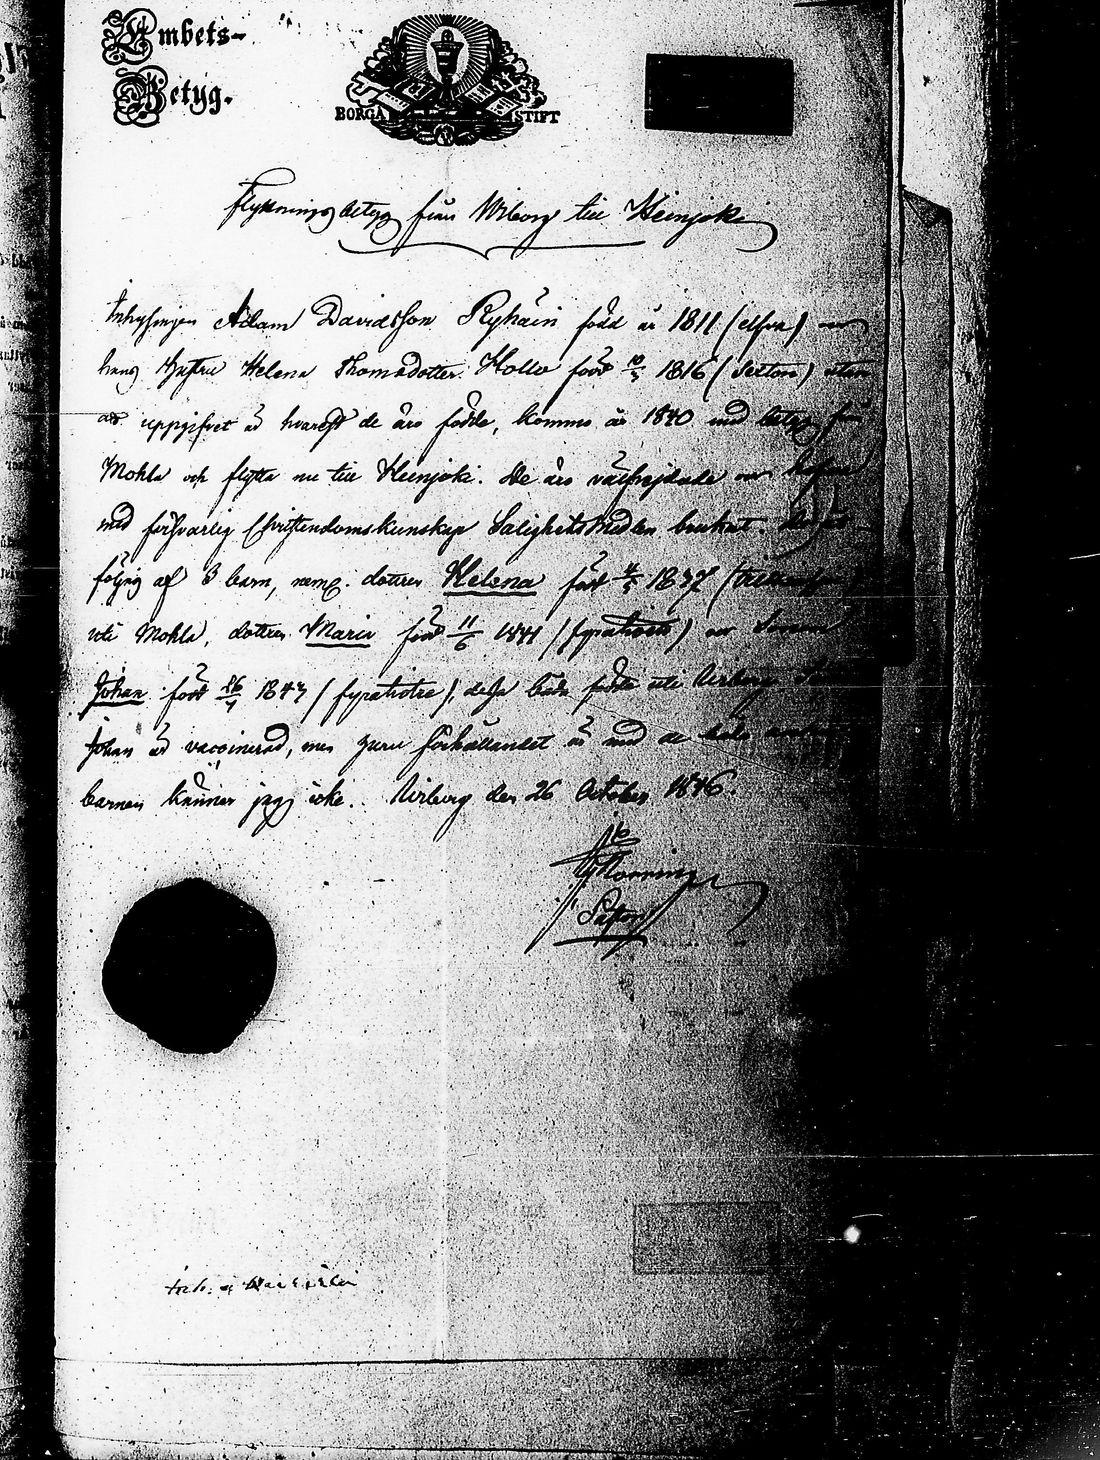 Embets-
Betyg.
BORGÅ STIFT
Flyttningsbetyg från Wiborg till Heinjoki
Inhysingen Adam Davidsson Pyhäin född år 1811 (elfva) och
hans hustru Helena Thomasdotter Hollo född 10/3 1816 (sexton) utan
att uppgifvet är hvarest de äro födde, kommo år 1840 med betyg från
Mohla och flytta nu till Heinjoki. De äro välfrejdade och hafva
med försvarlig Christendomskunskap Salighetsmedlen brukat.
följas af 3 barn, neml. dottren Helena född 4/5 1837
uti Mohla, dottren Maria född 11/6 1841 (fyratioett) och Sonen
Johan född 26/4 1843 (fyratiotre), dessa båda födde uti Wiborg.
Johan är vaccinerad, men huru förhållandet är med de båda andra
barnen känner jag icke. Wiborg den 26 October 1846.